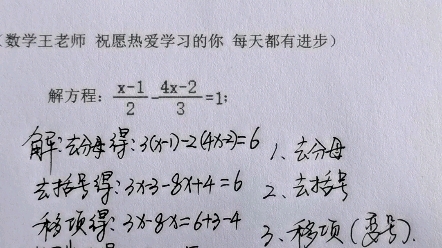 （数学王老师 祝愿热爱学习的你 每天都有进步）
解方程：(x-1)/2-(4x-2)/3=1；
解：去分母得：3(x-1)-2(4x-2)=6 1、去分母
去括号得：3x-3-8x+4=6 2、去括号
移项得：3x-8x=6+3-4 3、移项（变号）.